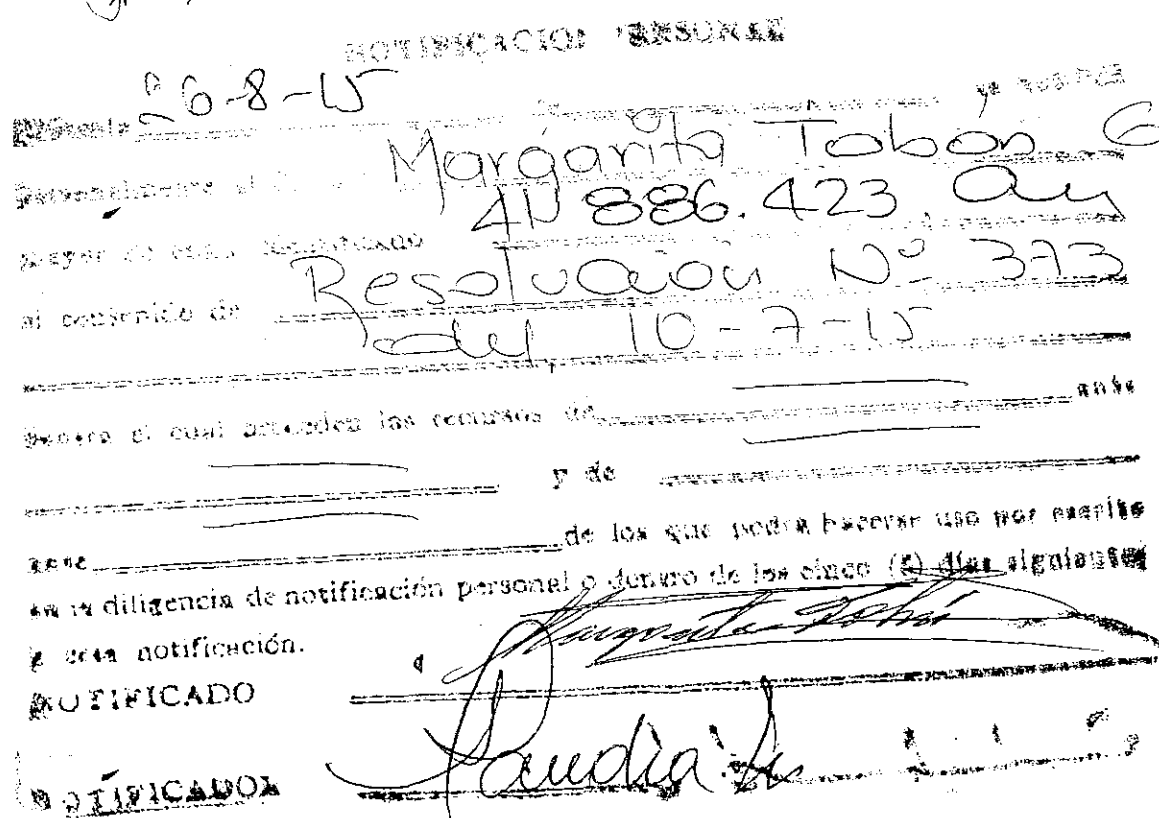 NOTIFICACION PERSONAL
26-8-15 se notifica
personalmente al Margarita Tobón G
mayor de edad identificado 41'886.423
al contenido de Resolución Nº 373
del 10-7-15
contra el cual proceden los recursos de ante
y de
ante de los que podrá hacerse uso por escrito
en la diligencia de notificación personal o dentro de los cinco (5) días siguientes
a esta notificación.
NOTIFICADO Margarita Tobón
NOTIFICADOR Claudia